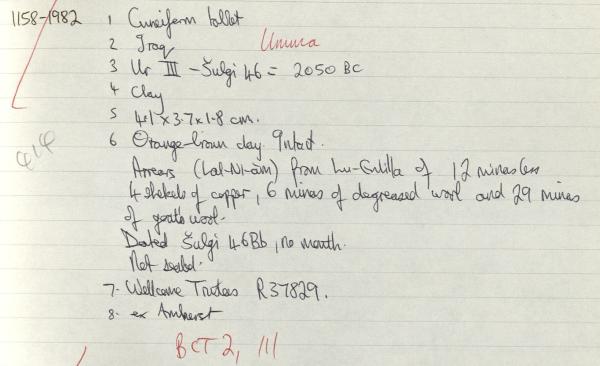 1158-1982 1 Cuneiform tablet
2 Iraq Umma
3 Ur III - Šulgi 46 = 2050 BC
4 Clay
5 4.1 x 3.7 x 1.8 cm.
6 Orange-brown clay. Intact.
Arrears (Lal-NI-àm) from Lu-Enlilla of 12 minas less
4 shekels of copper, 6 minas of degreased wool and 29 minas
of goats wool.
Dated Šulgi 46Bb, no month.
Not sealed.
7. Wellcome Trustees R37829.
8. ex Amherst
BCT 2, 111